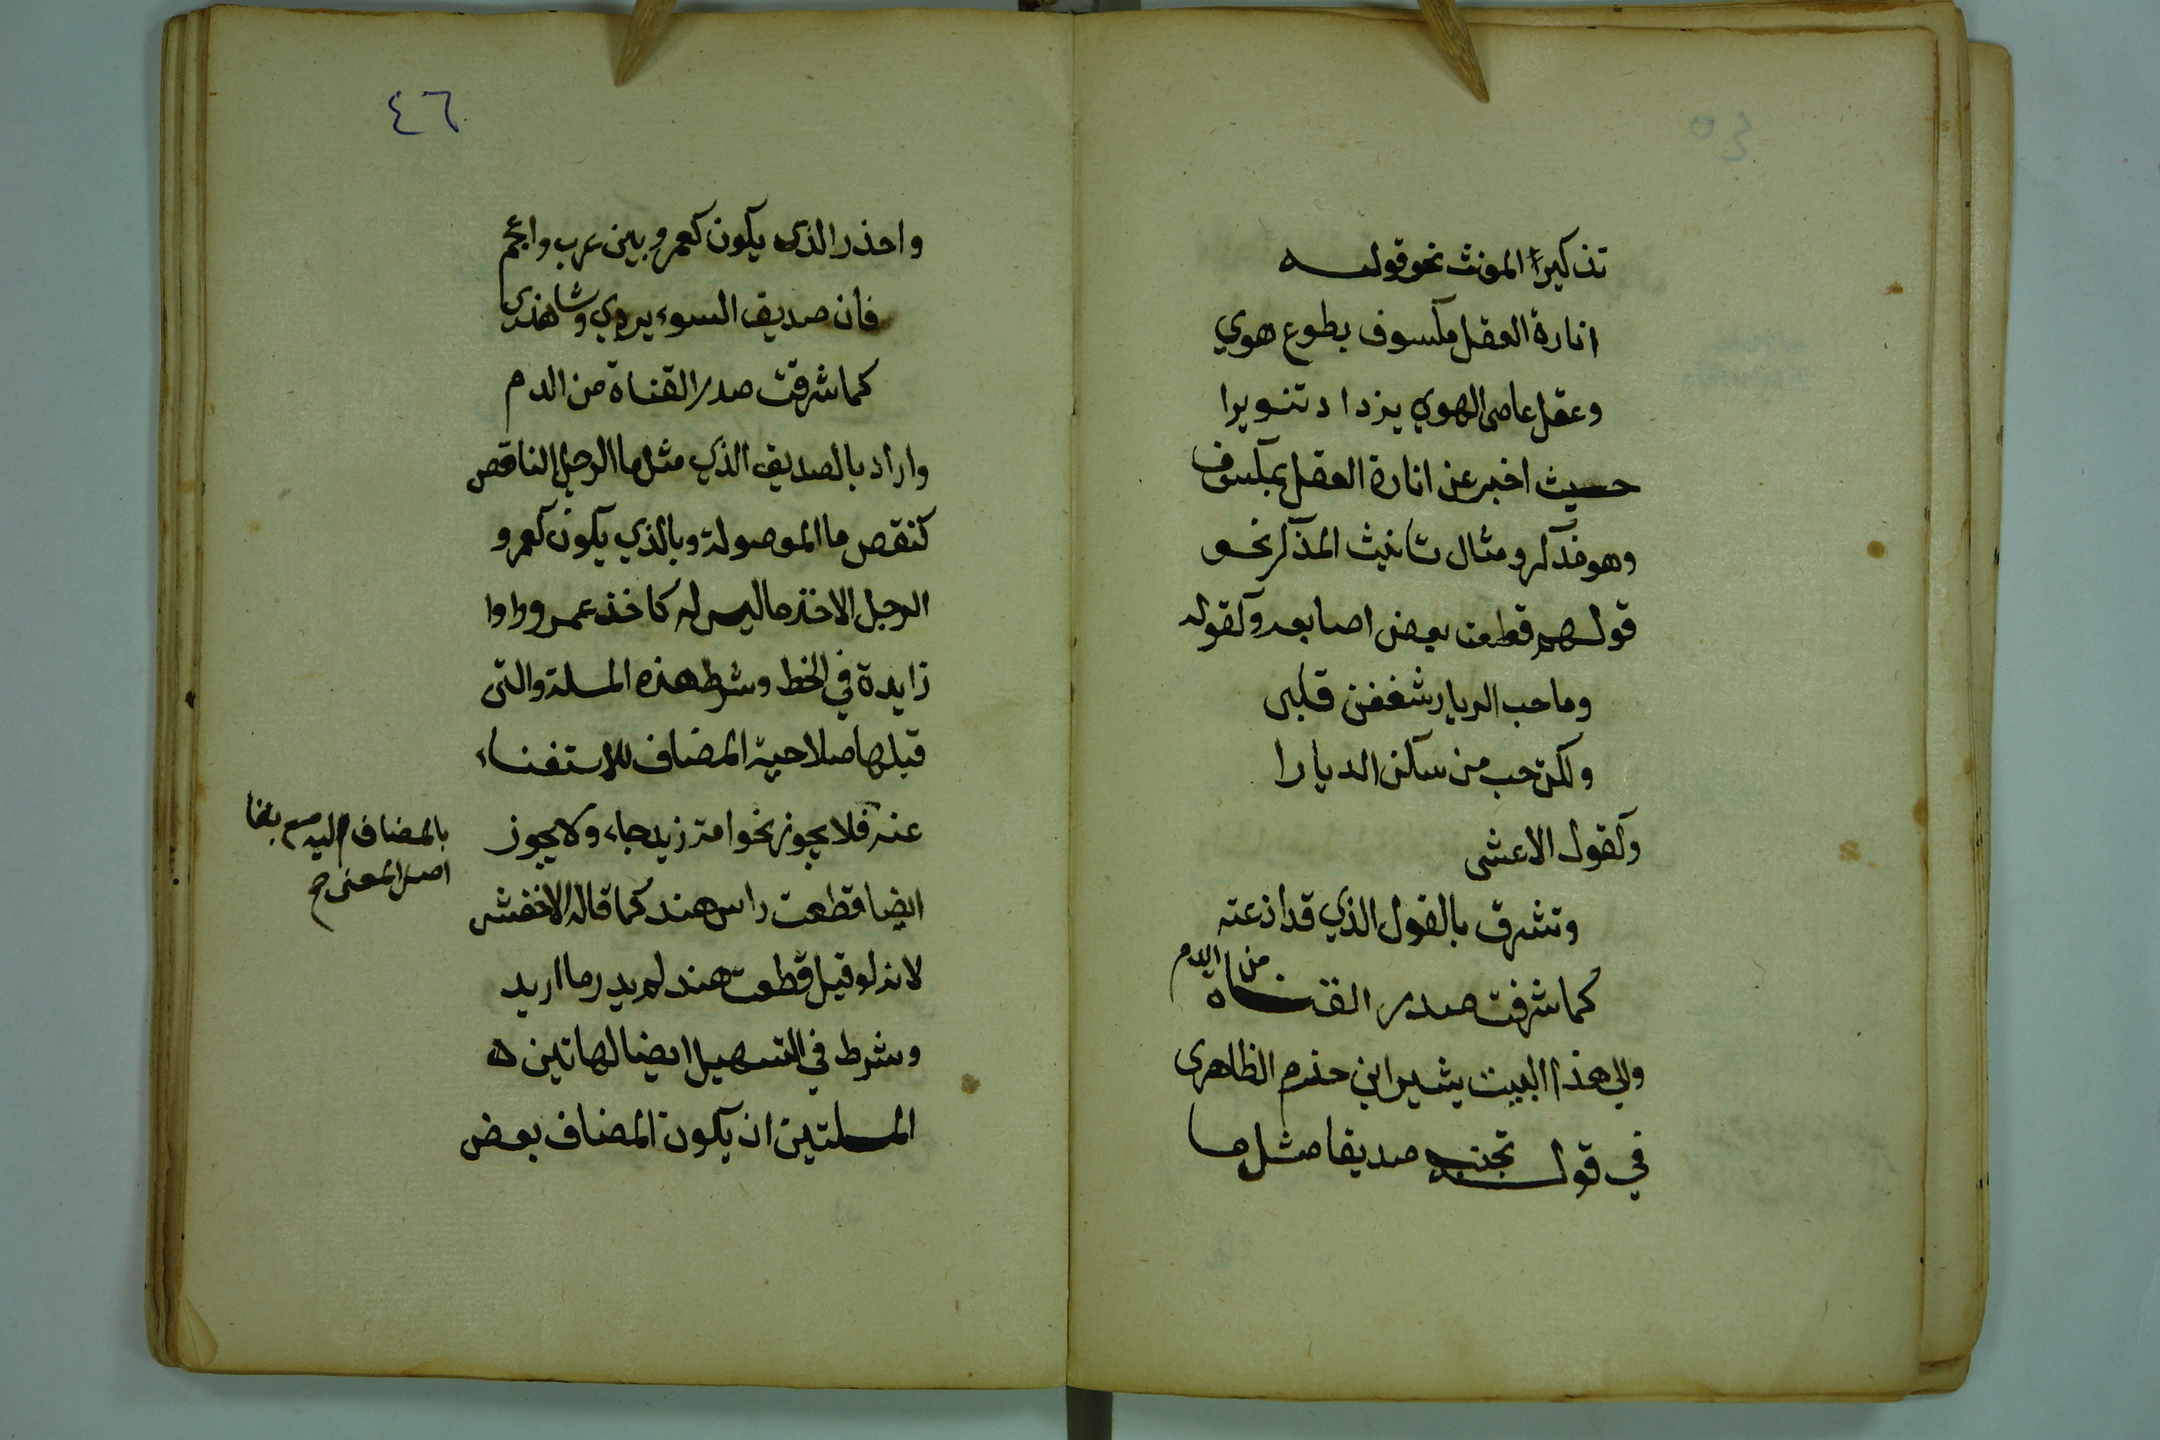 تذكير المونث نحو قوله
انارة العقل مكسوف بطوع هوي
وعقل عاصي الهوي يزداد تنويرا
حيث اخبر عن انارة العقل بمكسوف
وهو مذكر ومثال تانيث المذكر نحو
قولهم قطعت بعض اصابعه وكقوله
وما حب الديار شغفن قلبي
ولكن حب من سكن الديارا
وكقول الاعشى
وتشرق بالقول الذي قد اذعته
كما شرقت صدر القناة من الدم
والى هذا البيت يشير ابن حزم الظاهرى
في قوله تجنب صديقا مثل ما
٤٦
واحذر الذي يكون كعمرو بين عرب واعجم
فان صديق السوء يردي وشاهدى
كما شرقت صدر القناة من الدم
واراد بالصديق الذي مثل ما الرجل الناقص
كنقص ما الموصولة وبالذي يكون كعمرو
الرجل الاخذ ما ليس له كاخذ عمرو واوا
زايدة في الخط وشرط هذه المسلة والتى
قبلها صلاحية المضاف للاستغناء
عنه فلا يجوز نحو امة زيد جاء ولا يجوز
ايضا قطعت راس هند كما قاله الاخفش
لانه لو قيل قطعت هند لم يدر ما اريد
وشرط في التسهيل ايضا لهاتين
المسلتين ان يكون المضاف بعض
بالمضاف اليه مع بقا
اصل المعنى صح